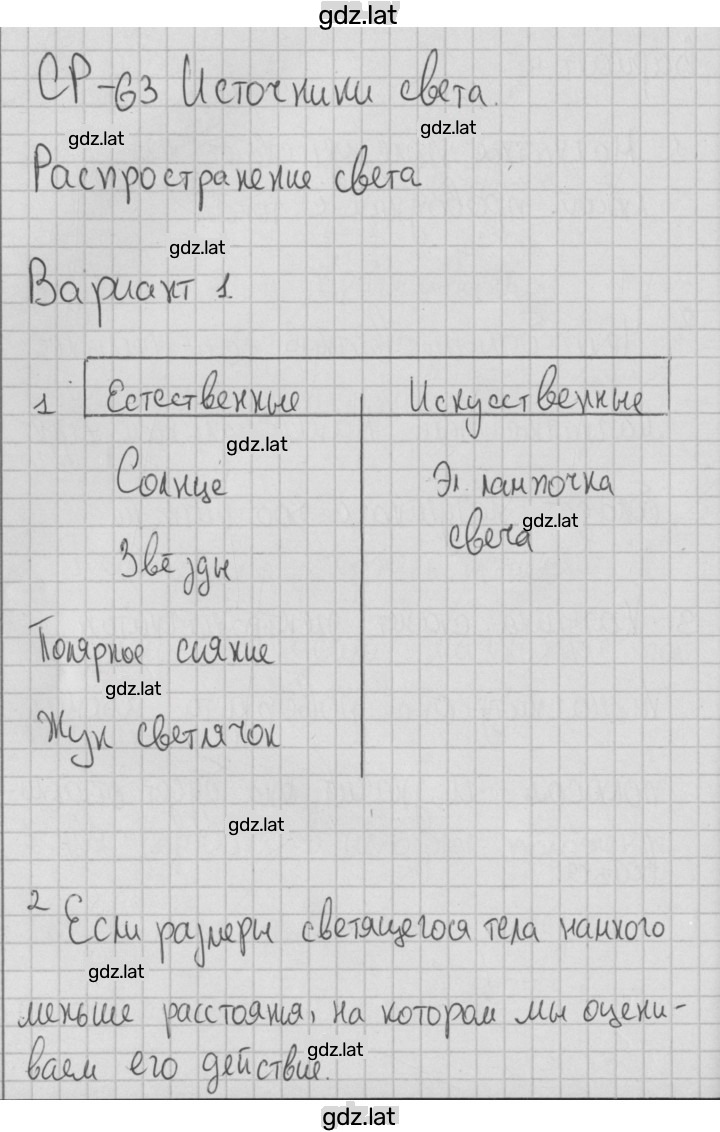 gdz.lat
СР-63 Источники света.
gdz.lat
gdz.lat
Распространение света
gdz.lat
Вариант 1.
1 Естественные Искусственные
gdz.lat
Солнце Эл. лампочка
gdz.lat
свеча
Звёзды
Полярное сияние
gdz.lat
Жук светлячок
gdz.lat
2 Если размеры светящегося тела намного
gdz.lat
меньше расстояния, на котором мы оцени-
gdz.lat
ваем его действие.
gdz.lat